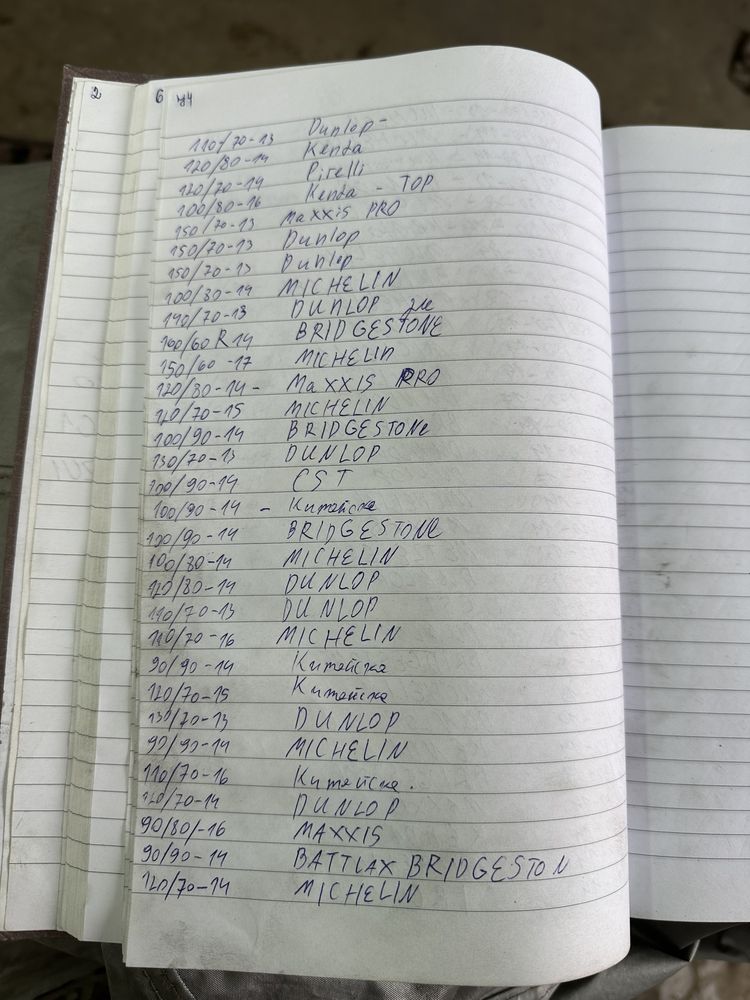 2
6
44
110/70-13 Dunlop-
120/80-14 Kenda
120/70-14 Pirelli
100/80-16 Kenda - TOP
150/70-13 MaXXiS PRO
150/70-13 Dunlop
150/70-13 Dunlop
100/80-14 MICHELIN
140/70-13 DUNLOP
160/60 R 14 BRIDGESTONE
150/60-17 MICHELIN
120/80-14 - MaXXIS PRO
120/70-15 MICHELIN
100/90-14 BRIDGESTONe
130/70-13 DUNLOP
100/90-14 CST
100/90-14 - Китайска
100/90-14 BRIDGESTONE
100/80-14 MICHELIN
120/80-14 DUNLOP
110/70-13 DUNLOP
110/70-16 MICHELIN
90/90-14 Китайска
120/70-15 Китайска
130/70-13 DUNLOP
90/90-14 MICHELIN
110/70-16 Китайска.
120/70-14 DUNLOP
90/80/-16 MAXXIS
90/90-14 BATTLAX BRIDGESTON
120/70-14 MICHELIN